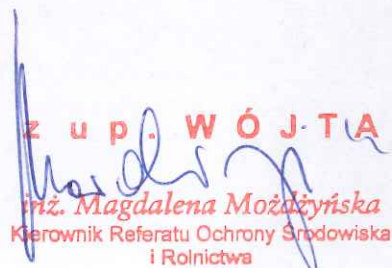 z up. WÓJTA
inż. Magdalena Możdżyńska
Kierownik Referatu Ochrony Środowiska
i Rolnictwa